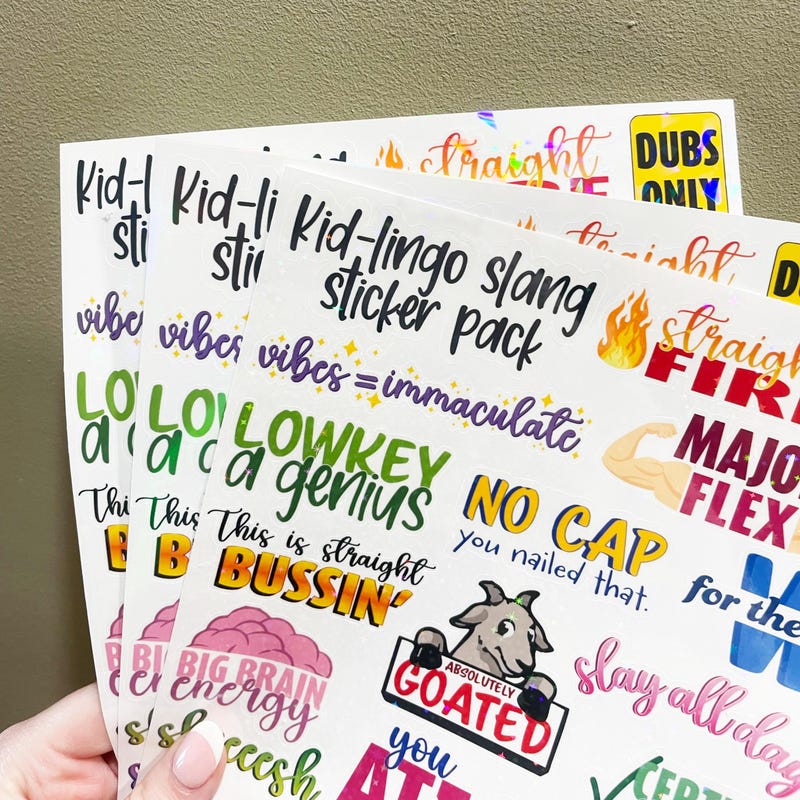 straight
DUBS
ONLY
Kid-l
sti
Kid-li
sti
straight
Kid-lingo slang
sticker pack
straigh
FIR
vibes
vibes
vibes = immaculate
MAJO
FLEX
LO
a
LO
a
LOWKEY
a genius
NO CAP
you nailed that.
This
B
This
B
This is straight
BUSSIN'
for the
W
ABSOLUTELY
GOATED
BIG BRAIN
energy
slay all day
sheeesh
you
ATE
CERT